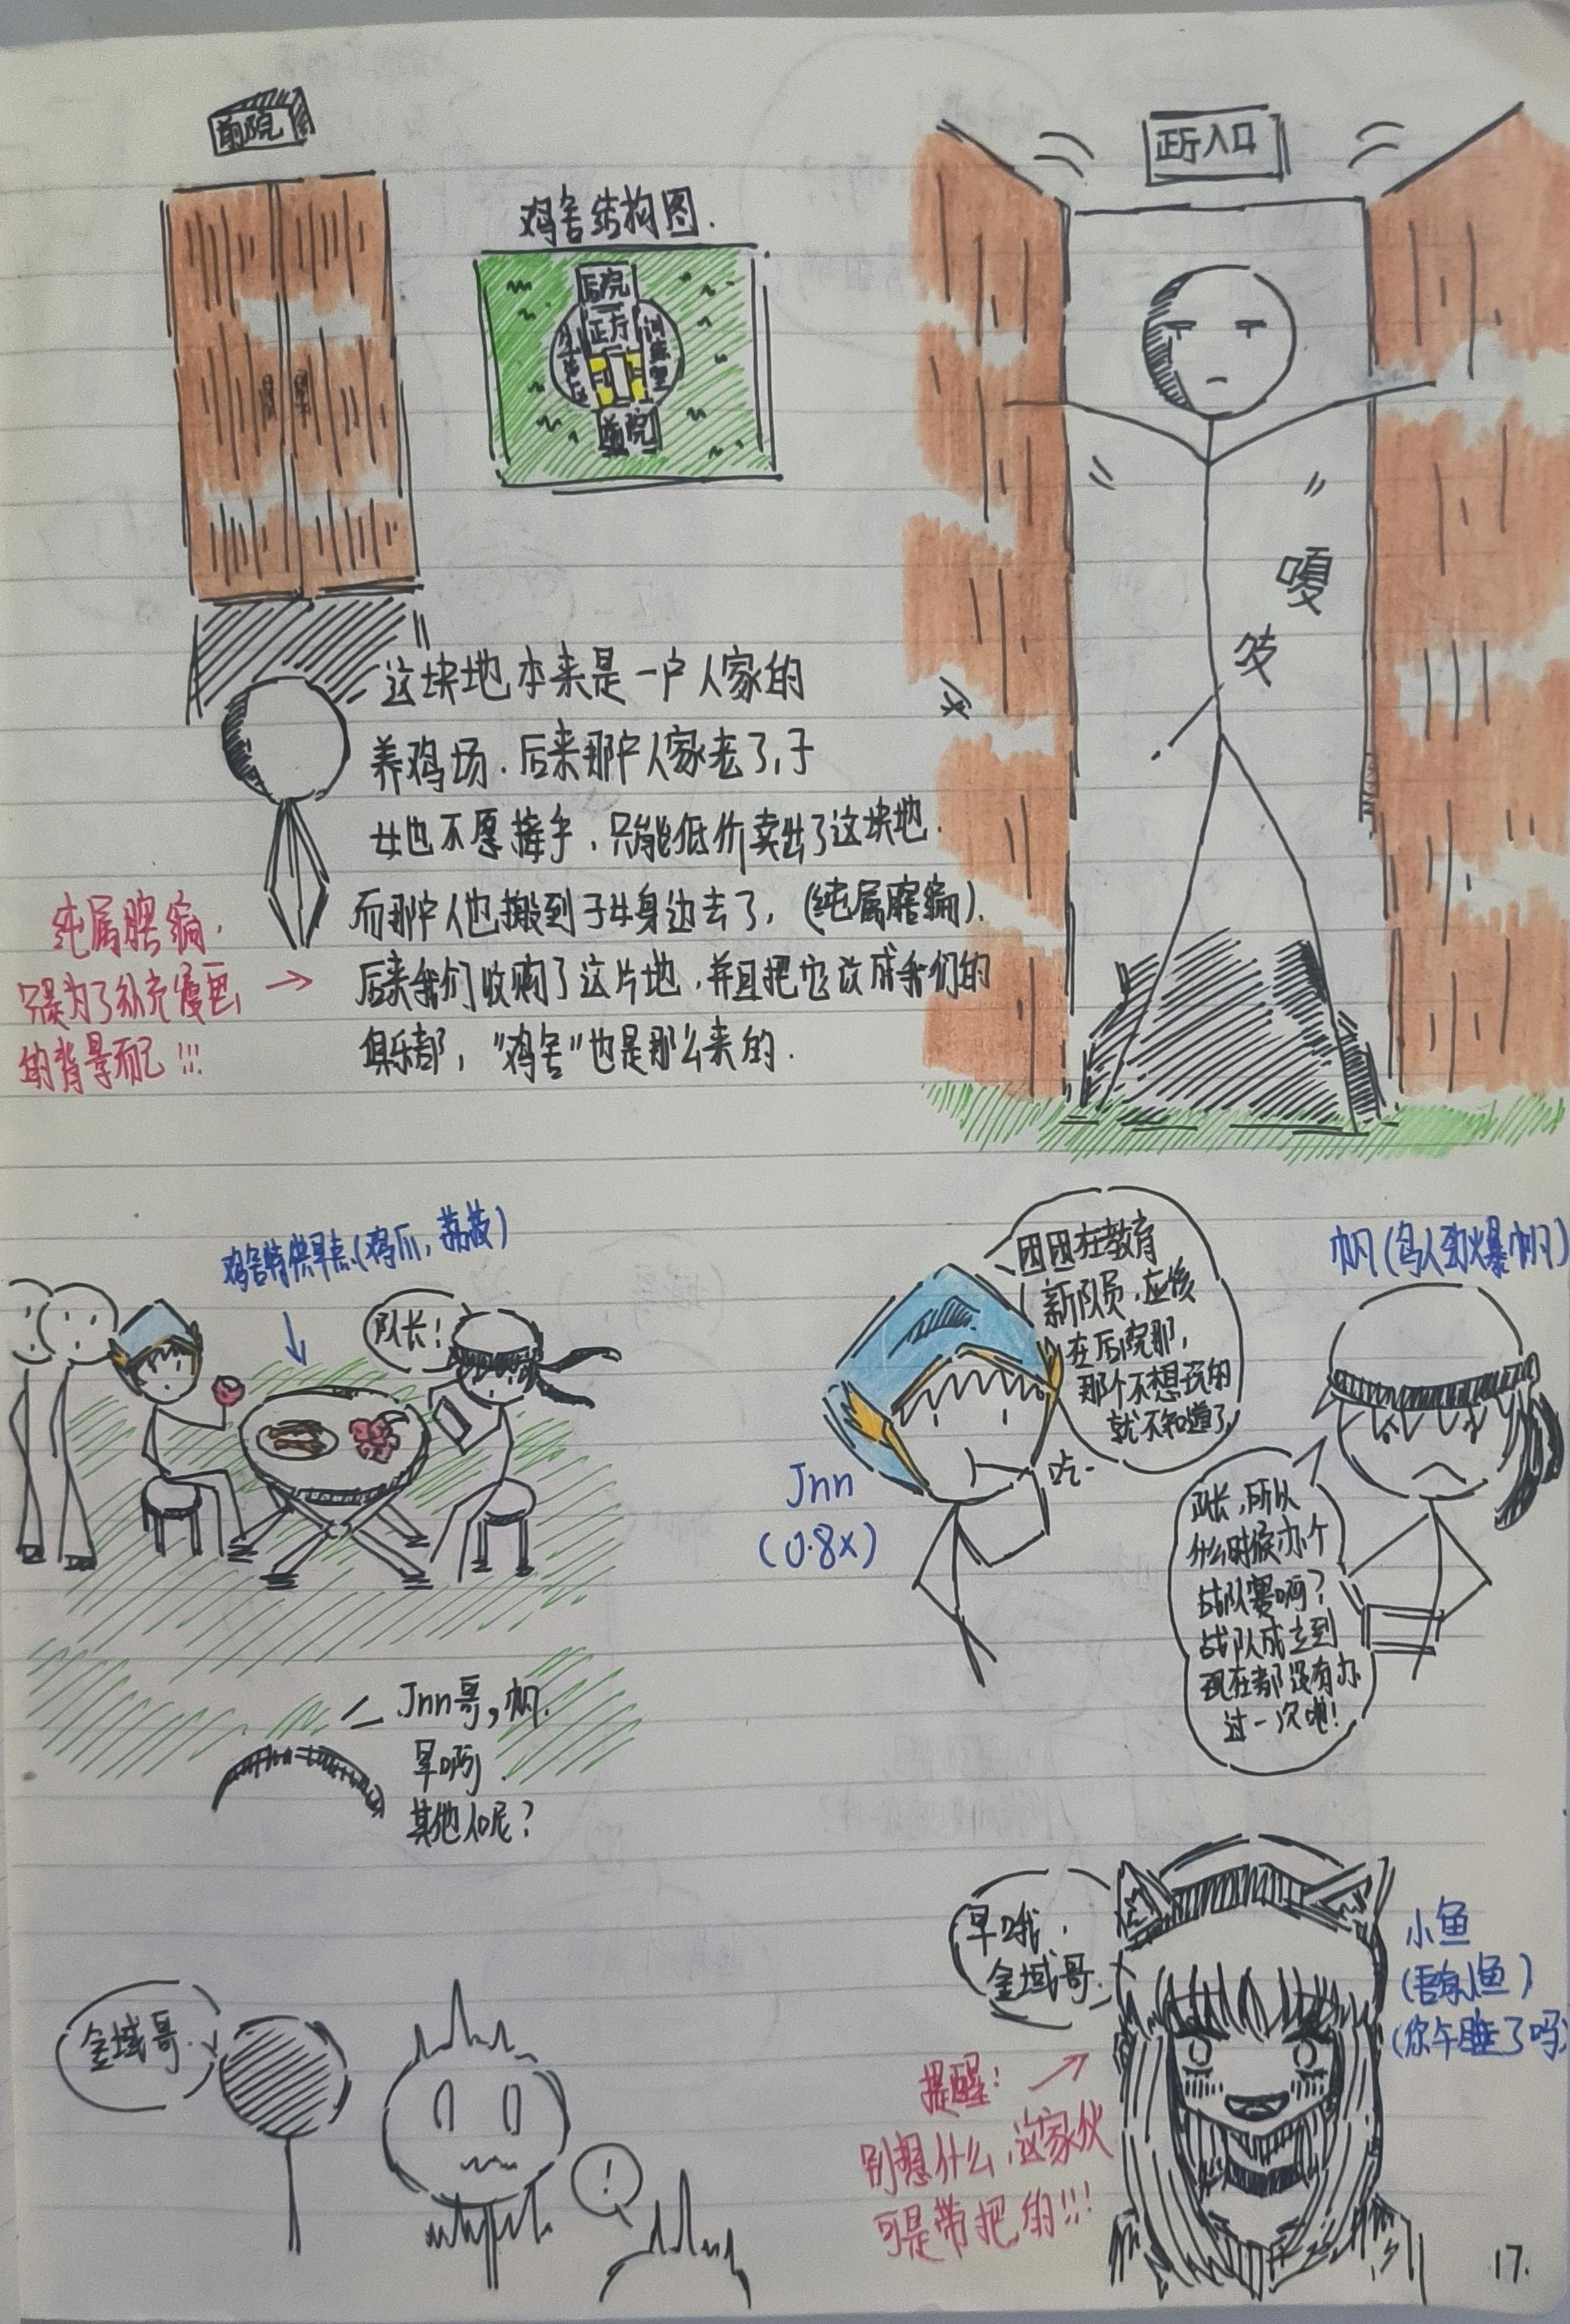 前院
鸡舍结构图.
后院
正厅
训练室
前院
正厅入口
嘎
吱
这块地本来是一户人家的
养鸡场.后来那户人家老了,子
女也不愿接手,只能低价卖出了这块地.
而那户人也搬到子女身边去了,(纯属瞎编).
后来我们收购了这片地,并且把它改成我们的
俱乐部,"鸡舍"也是那么来的.
纯属瞎编,
只是为了补充漫画
的背景而已!!!
鸡舍特供早点(鸡爪,荔枝)
队长!
Jnn哥,帆.
早啊
其他人呢?
团团在教育
新队员,应该
在后院那,
那个不想说的
就不知道了
吃-
Jnn
(0.8x)
帆(鸟人劲爆帆)
队长,所以
什么时候办个
战队赛啊?
战队成立到
现在都没有办
过一次吔!
金域哥.
!
早哦,
金域哥.
小鱼
(吾有小鱼)
(你午睡了吗)
提醒:
别想什么,这家伙
可是带把的!!!
17.